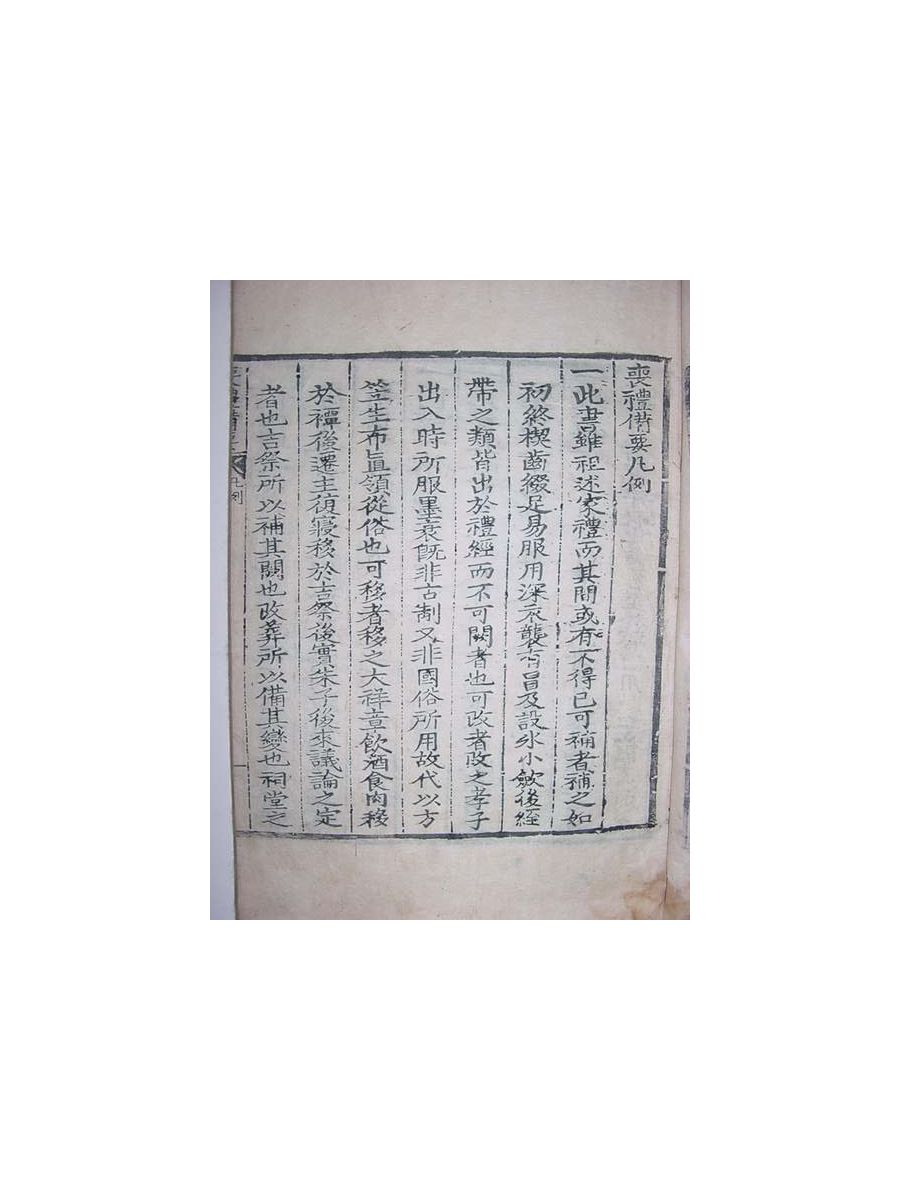 喪禮備要凡例
一此書雖祖述家禮而其間或有不得已可補者補之如
初終楔齒綴足易服用深衣襲有冒及設氷小斂後絰
帶之類皆出於禮經而不可闕者也可改者改之孝子
出入時所服墨衰旣非古制又非國俗所用故代以方
笠生布直領從俗也可移者移之大祥章飮酒食肉移
於禫後遷主復寢移於吉祭後實朱子後來議論之定
者也吉祭所以補其闕也改葬所以備其變也祠堂之
凡例